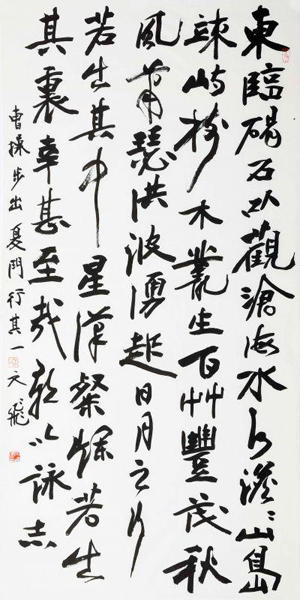 東臨碣石以觀滄海水何澹〻山島
竦峙樹木叢生百艸豐茂秋
風蕭瑟洪波湧起日月之行
若出其中星漢粲爛若出
其裏幸甚至哉歌以詠志
曹操步出夏門行其一 飛